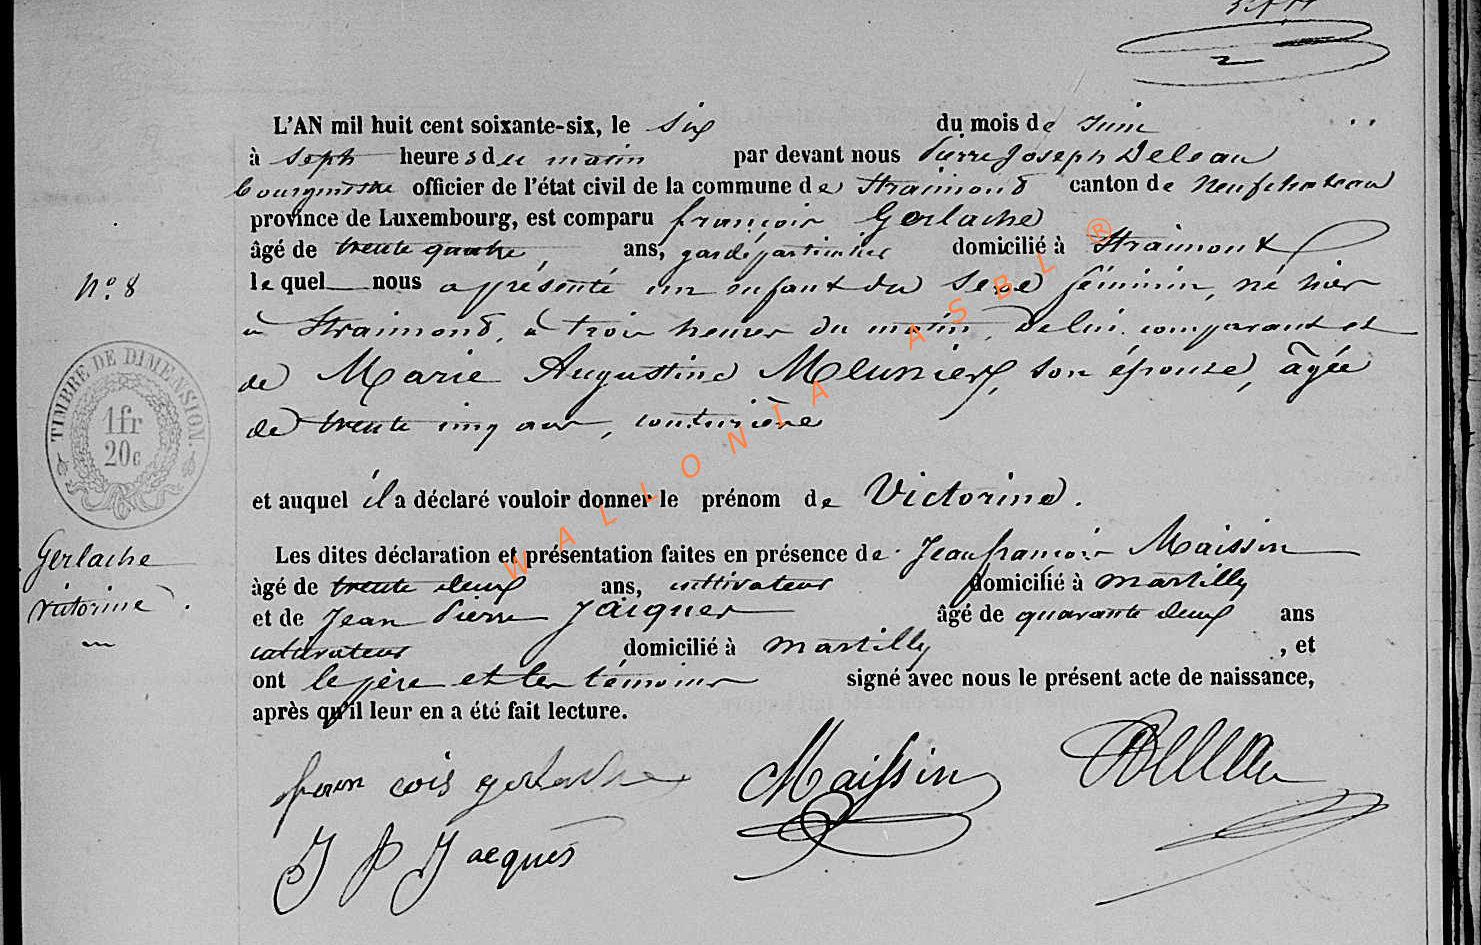 L'AN mil huit cent soixante-six, le six du mois de Juin
à Sept heures du matin par devant nous Pierre Joseph Deleau
bourgmestre officier de l'état civil de la commune de Straimont canton de Neufchateau
province de Luxembourg, est comparu françois Gerlache
âgé de trente quatre, ans, garde particulier domicilié à Straimont
lequel nous a présenté un enfant du Sexe féminin, né hier
N° 8
à Straimont, à trois heures du matin, de lui comparant et
de Marie Augustine Meunier, son épouse, âgée
de trente cinq ans, couturière
TIMBRE DE DIMENSION.
1fr
20c
et auquel il a déclaré vouloir donner le prénom de Victorine.
Les dites déclaration et présentation faites en présence de Jean françois Maissin
Gerlache
Victorine.
âgé de trente deux ans, cultivateur domicilié à Martilly
et de Jean Pierre Jacques âgé de quarante deux ans
cultivateur domicilié à Martilly, et
ont le père et les témoins signé avec nous le présent acte de naissance,
après qu'il leur en a été fait lecture.
fran cois gerlache Maissin Deleau
J P Jacques
WALLONIA ASBL ®